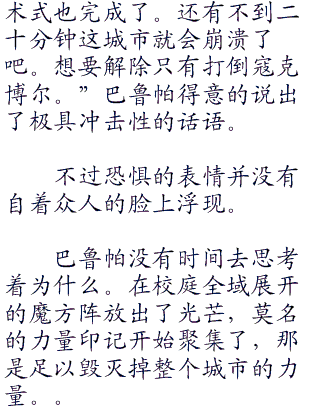 术式也完成了。还有不到二
十分钟这城市就会崩溃了
吧。想要解除只有打倒寇克
博尔。”巴鲁帕得意的说出
了极具冲击性的话语。
不过恐惧的表情并没有
自着众人的脸上浮现。
巴鲁帕没有时间去思考
着为什么。在校庭全域展开
的魔方阵放出了光芒，莫名
的力量印记开始聚集了，那
是足以毁灭掉整个城市的力
量。。